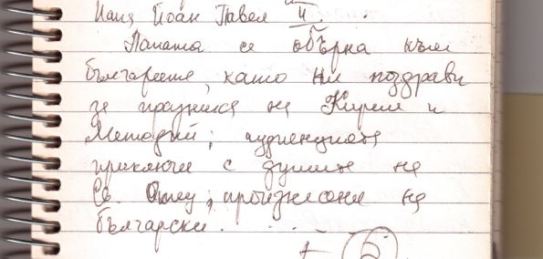 Папа Йоан Павел II.
Папата се обърна към
българите, като ни поздрави
за празника на Кирил и
Методий; аудиенцията
приключи с думите на
Св. Отец, произнесени на
български.